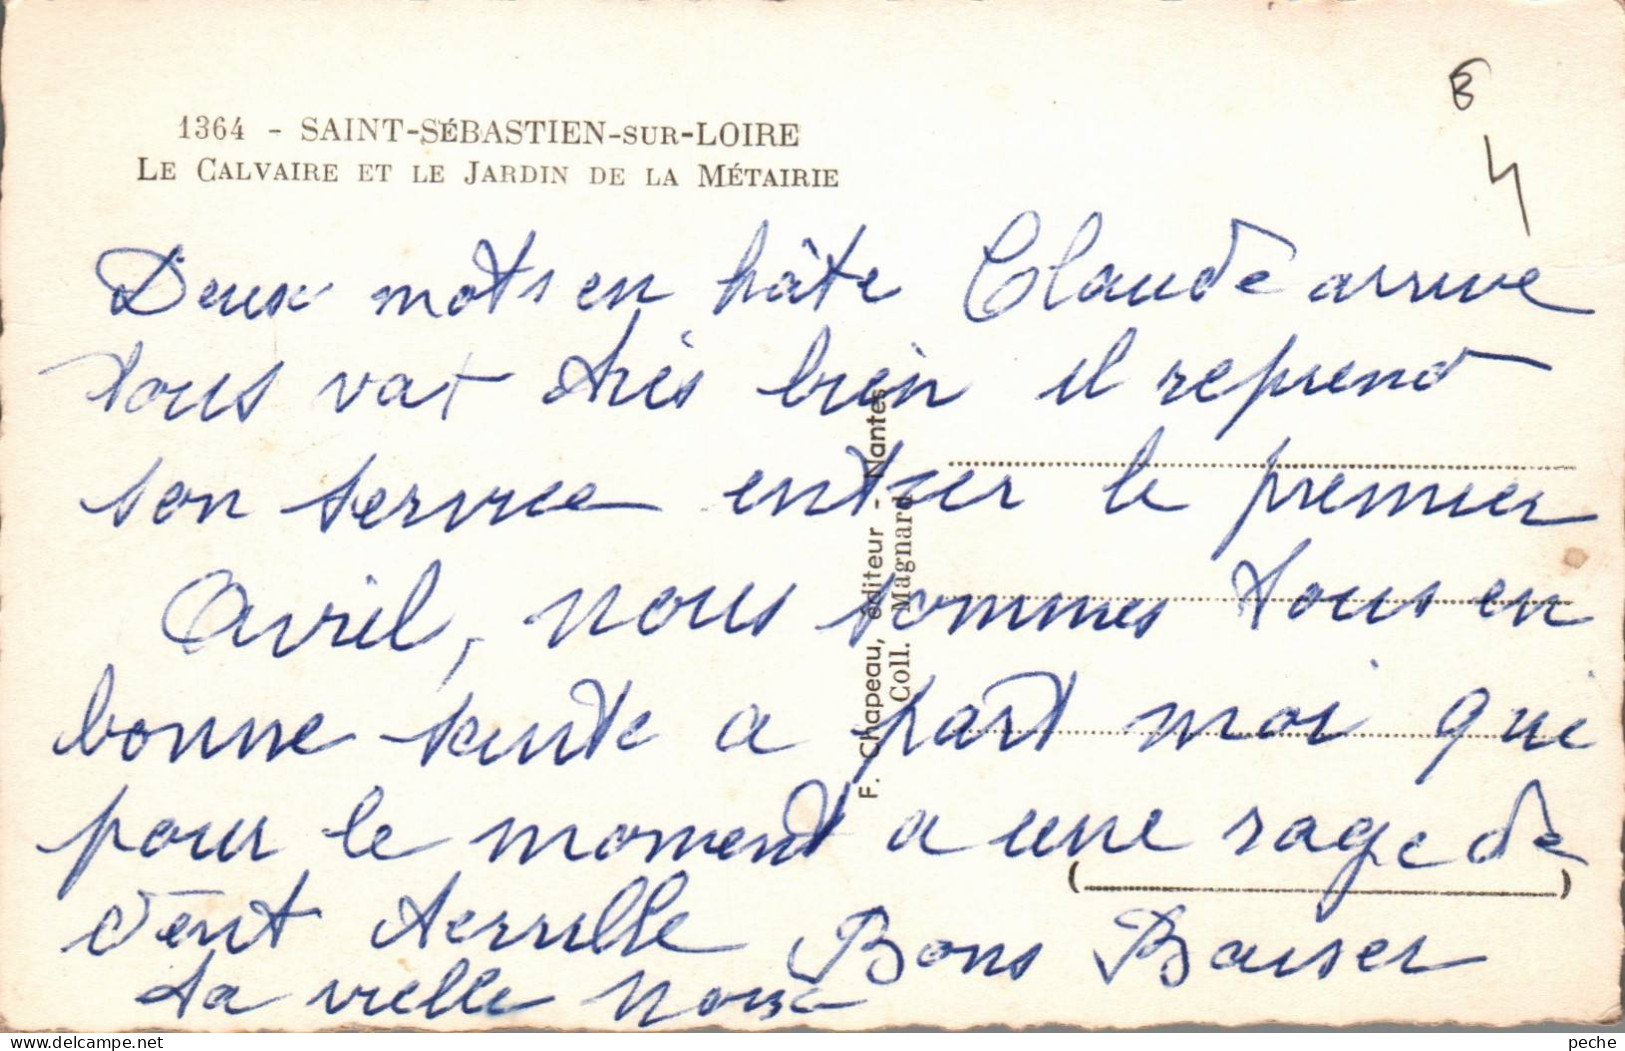 1364 - SAINT-SÉBASTIEN-SUR-LOIRE
LE CALVAIRE ET LE JARDIN DE LA MÉTAIRIE
8
4
Deux mots en hâte Claude arrive
tous vat très bien il reprend
son service entrer le premier
Avril, nous sommes tous en
bonne sante a part moi qui
pour le moment a une rage de
dent terrible Bons Baiser
ta vielle
F. Chapeau, éditeur - Nantes
Coll. Magnard
www.delcampe.net
peche